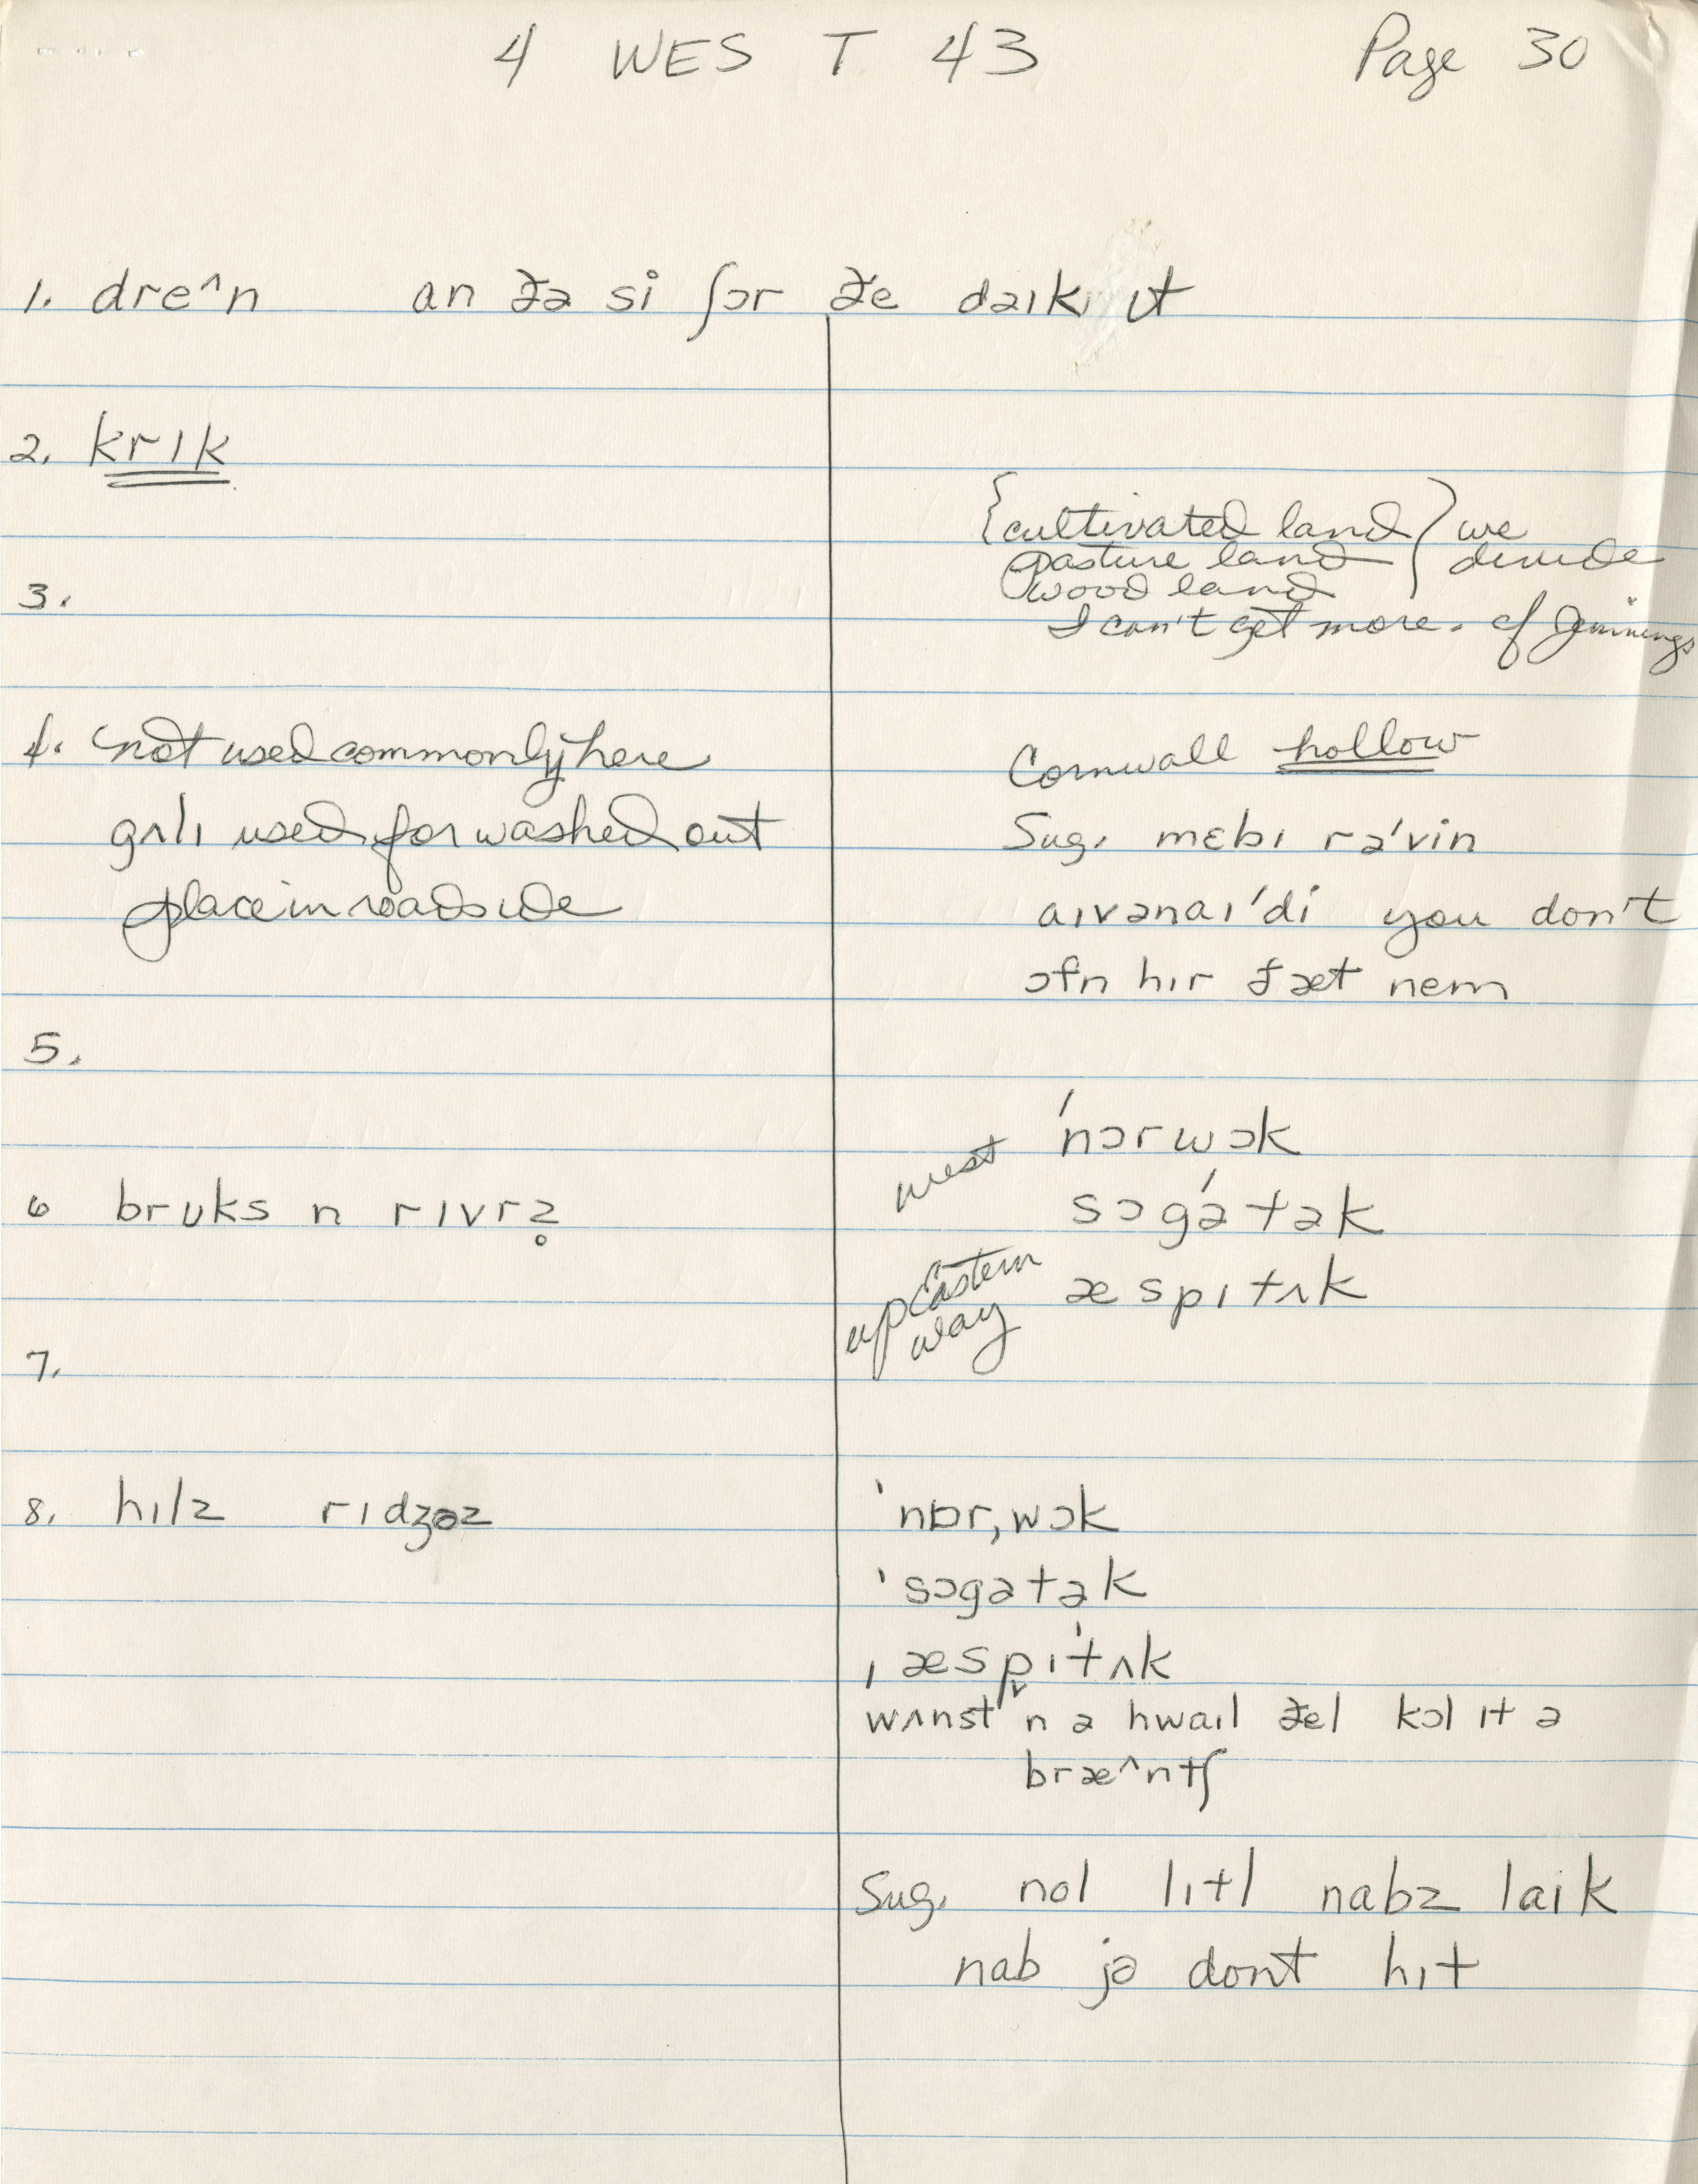 4 WES T 43 Page 30
1. dre^n an ðə si ʃɔr ðe daɪk ɪt
2. krɪk
{cultivated land) we
pasture land divide
wood land
3.
I can't get more. cf Jennings
4. not used commonly here
gʌlɪ used for washed out
place in roadside
Cornwall hollow
Sug. mɛbɪ rə'vin
aɪvənaɪ'di you don't
ɔfn hɪr ðæt nem
5.
west 'nɔrwɔk
sɔgə́tək
up Eastern way æspɪtʌk
6 brʊks n rɪvrz̥
7.
8. hɪlz rɪdʒəz
'nɒr,wɔk
'sɔgətək
ˌæspɪ'tʌk
wʌnst n ə hwaɪl ðel kɔl ɪt ə
bræ^ntʃ
Sug. nol lɪtl nabz laik
nab jə dont hɪt